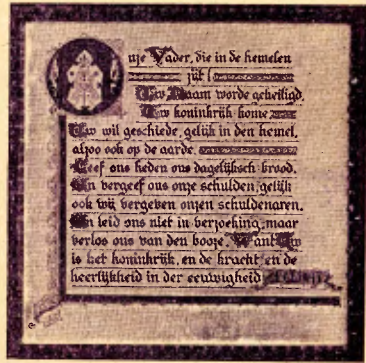 Onze Vader, die in de hemelen
zijt!
Uw Naam worde geheiligd.
Uw koninkrijk kome
Uw wil geschiede, gelijk in den hemel,
alzoo ook op de aarde.
Geef ons heden ons dagelijksch brood.
En vergeef ons onze schulden, gelijk
ook wij vergeven onzen schuldenaren.
En leid ons niet in verzoeking, maar
verlos ons van den booze. Want Uw
is het koninkrijk, en de kracht, en de
heerlijkheid in der eeuwigheid